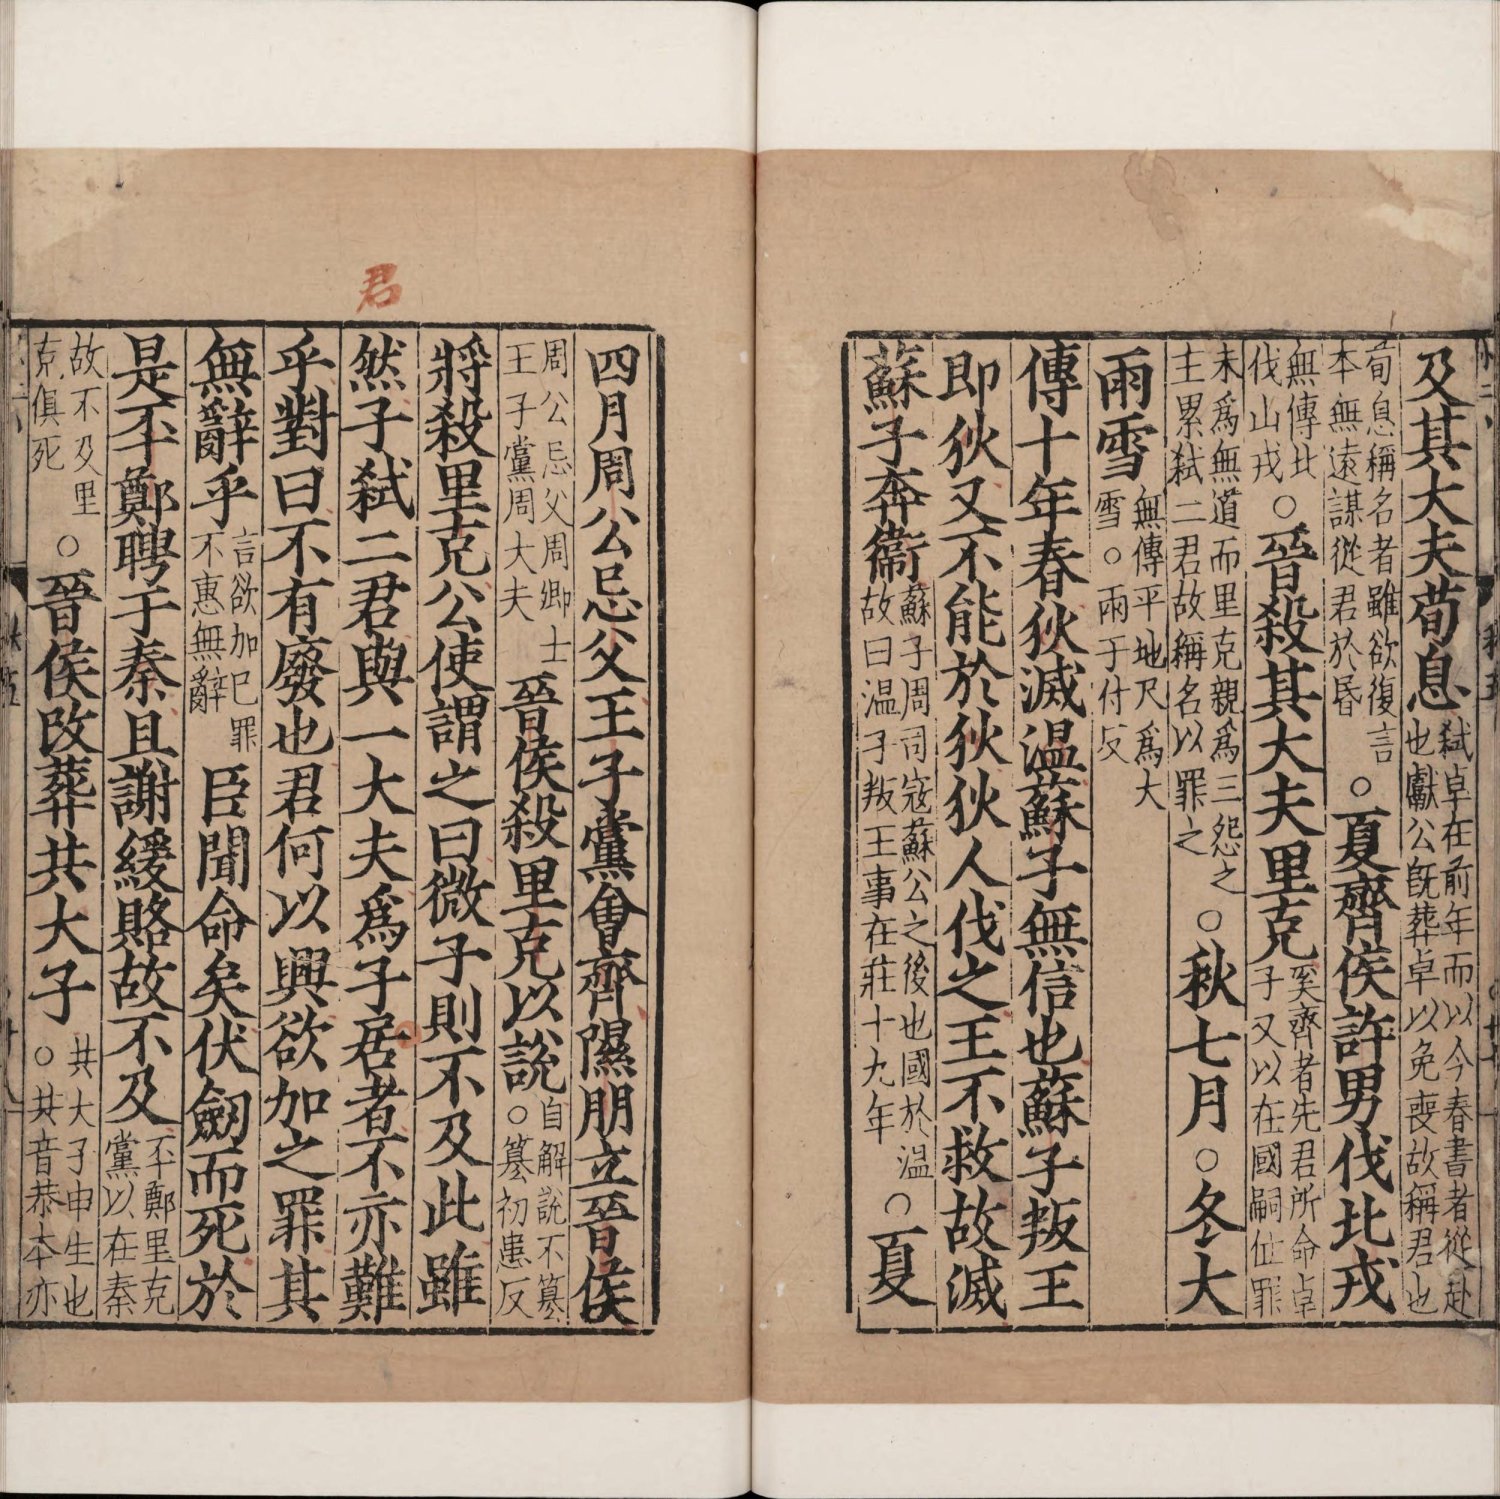 及其大夫荀息弒卓在前年而以今春書者從赴也獻公既葬卓以免喪故稱君也
荀息稱名者雖欲復言本無遠謀從君於昏○夏齊侯許男伐北戎
無傳北戎山戎○晉殺其大夫里克奚齊者先君所命卓子又以在國嗣位罪
未為無道而里克親為三怨之主累弒二君故稱名以罪之○秋七月○冬大
雨雪無傳平地尺為大雪○雨于付反
傳十年春狄滅溫蘇子無信也蘇子叛王
即狄又不能於狄狄人伐之王不救故滅
蘇子奔衞蘇子周司寇蘇公之後也國於溫故曰溫子叛王事在莊十九年○夏
君
四月周公忌父王子黨會齊隰朋立晉侯
周公忌父周卿士王子黨周大夫晉侯殺里克以說自解說不篡○篡初患反
將殺里克公使謂之曰微子則不及此雖
然子弒二君與一大夫爲子君者不亦難
乎對曰不有廢也君何以興欲加之罪其
無辭乎言欲加巳罪不患無辭臣聞命矣伏劒而死於
是丕鄭聘于秦且謝緩賂故不及丕鄭里克黨以在秦
故不及里克俱死○晉侯改葬共大子共大子申生也○共音恭本亦